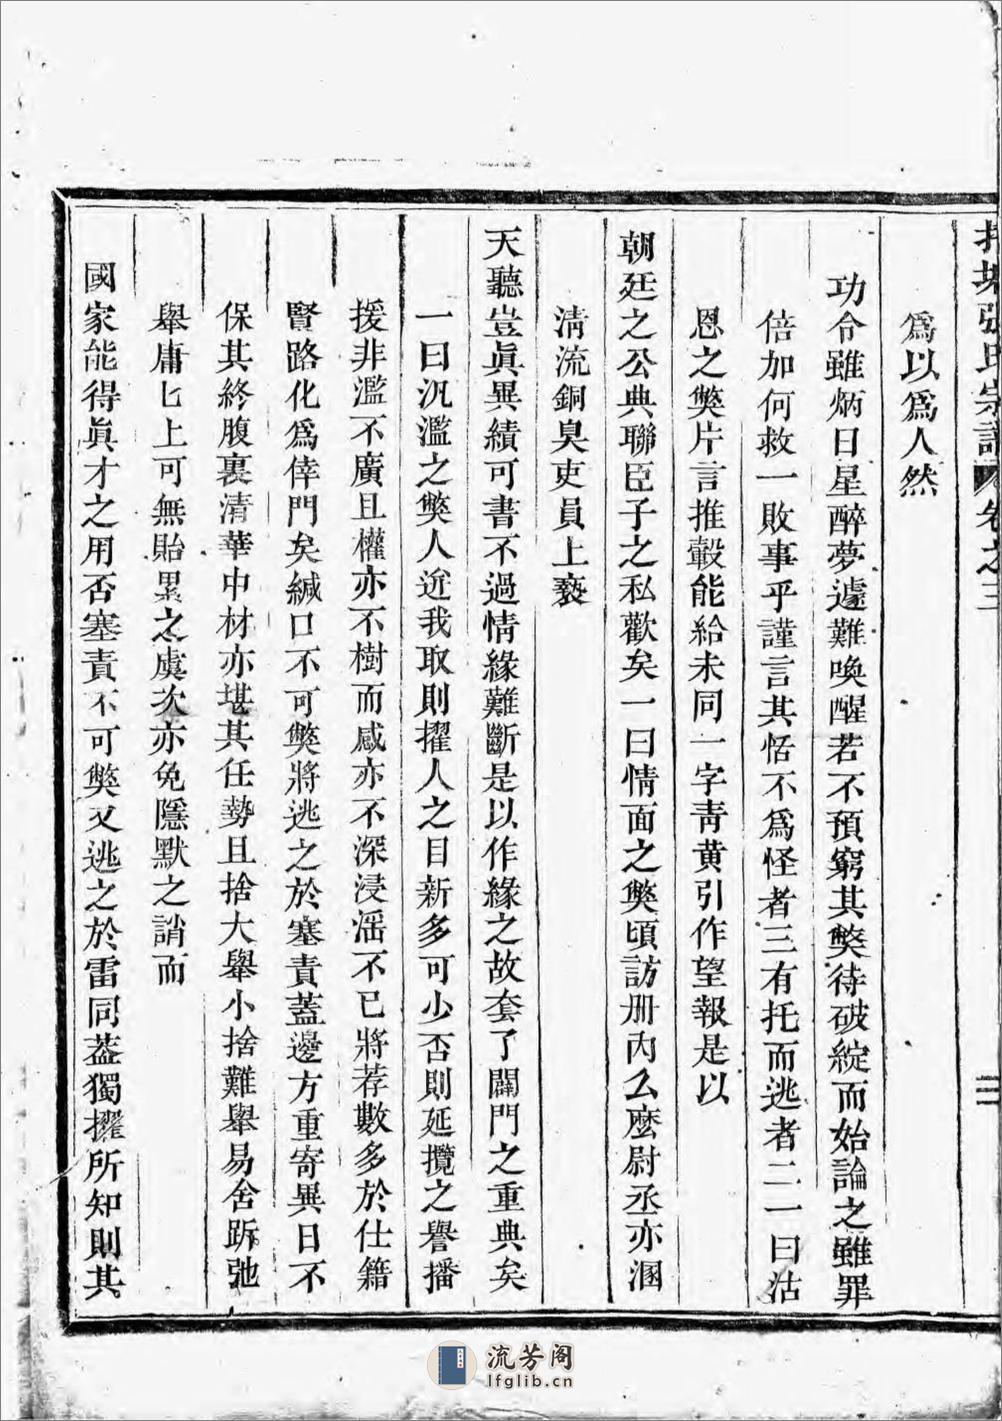 張氏宗譜 卷之三 三
爲以爲人然
功令雖炳日星醉夢遽難喚醒若不預窮其獘待破綻而始論之雖罪
倍加何救一敗事乎謹言其恬不爲怪者三有托而逃者二一曰沽
恩之獘片言推轂能給未同一字靑黃引作望報是以
朝廷之公典聯臣子之私歡矣一曰情面之獘頃訪册内么麽尉丞亦溷
淸流銅臭吏員上褻
天聽豈眞異績可書不過情緣難斷是以作緣之故套了闢門之重典矣
一曰汎濫之獘人近我取則擢人之目新多可少否則延攬之譽播
援非濫不廣且權亦不樹而感亦不深浸滛不已將荐數多於仕籍
賢路化爲倖門矣緘口不可獘將逃之於塞責蓋邊方重寄異日不
保其終腹裏清華中材亦堪其任勢且捨大舉小捨難舉易舍跅弛
舉庸匕上可無貽累之虞次亦免隱默之誚而
國家能得眞才之用否塞責不可獘又逃之於雷同蓋獨擢所知則其
流芳阁
lfglib.cn